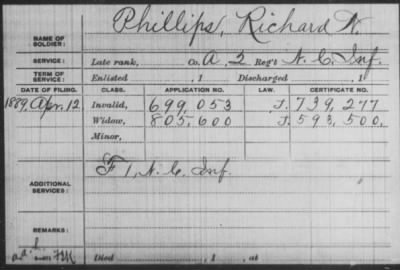 NAME OF SOLDIER: Phillips, Richard N.
SERVICE: Late rank, Co. A, 2 Reg't N.C. Inf.
TERM OF SERVICE: Enlisted , 1 Discharged , 1
DATE OF FILING. CLASS. APPLICATION NO. LAW. CERTIFICATE NO.
1889, Apr. 12 Invalid, 699,053 J. 739,277
Widow, 805,600 J. 593,500,
Minor,
ADDITIONAL SERVICES: F 1, N.C. Inf.
REMARKS:
Died , 1 , at